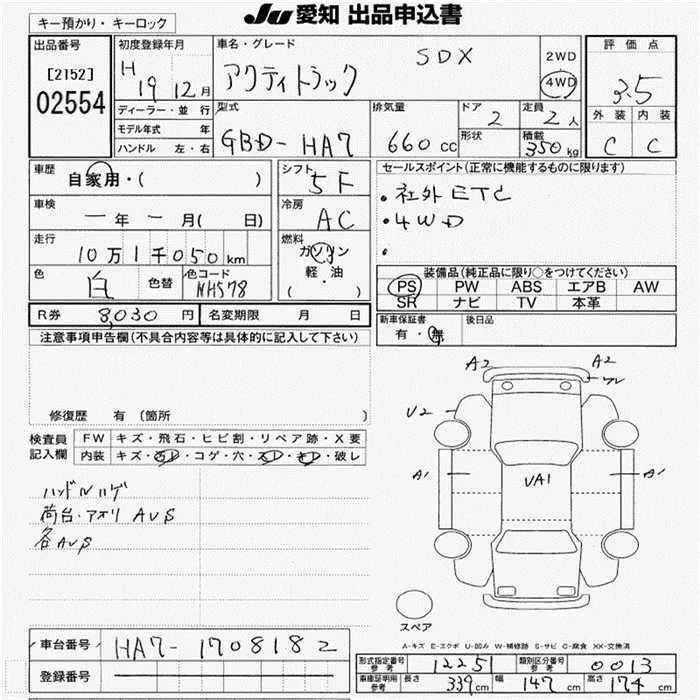 JU 愛知 出品申込書
キー預かり・キーロック
出品番号
[2152]
02554
初度登録年月
H 19 12月
車名・グレード
アクティトラック SDX
2WD
4WD
評価点
3.5
外装 内装
C C
ディーラー・並行
モデル年式 年
ハンドル 左・右
型式
GBD-HA7
排気量
660cc
ドア
2
形状
定員
2人
積載
350kg
車歴
自家用・( )
車検
一年一月( 日)
走行
10万1千050km
色
白
色替
色コード
NH578
シフト
5F
冷房
AC
燃料
ガソリン
軽・油
( )
セールスポイント(正常に機能するものに限ります)
・社外ETC
・4WD
・
装備品(純正品に限り○をつけてください)
PS PW ABS エアB AW
SR ナビ TV 本革
R券 8,030円 名変期限 月 日
新車保証書
有・無
後日品
注意事項申告欄(不具合内容等は具体的に記入して下さい)
修復歴 有(箇所 )
検査員
記入欄
FW キズ・飛石・ヒビ割・リペア跡・X要
内装 キズ・汚レ・コゲ・穴・スレ・キレ・破レ
ハンドルハゲ
荷台・アオリ AUS
各AUS
A2
A2
U2
A1
UA1
A1
スペア
A-キズ E-エクボ U-凹み W-補修跡 S-サビ C-腐食 XX-交換済
車台番号 HA7-1708182
登録番号
形式指定番号
参考
12251
類別区分番号
参考
0013
車庫証明用
参考
長さ 339cm 幅 147cm 高さ 174cm